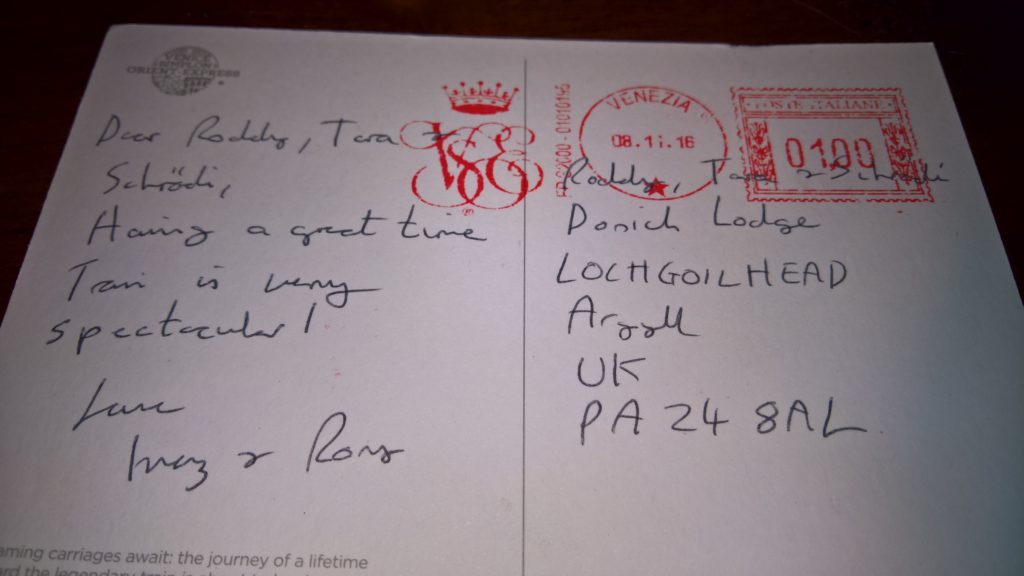 VENICE
SIMPLON
ORIENT-EXPRESS
Dear Roddy, Tara &
Schrödi,
Having a great time
Train is very
spectacular!
Love
& Rory
aming carriages await: the journey of a lifetime
ard the legendary train
VSOE
VENEZIA
08.11.16
POSTE ITALIANE
0100
Roddy, Tara & Schrödi
Donich Lodge
LOCHGOILHEAD
Argyll
UK
PA24 8AL